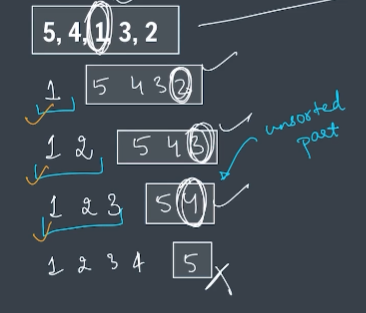 5, 4, 1 3, 2
1 5 4 3 2
1 2 5 4 3
unsorted
part
1 2 3 5 4
1 2 3 4 5